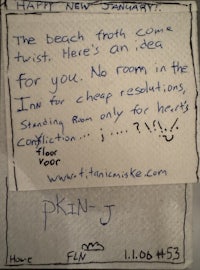 HAPPY NEW JANUARY!.
The beach froth come
twist. Here's an idea
for you. No room in the
Inn for cheap resolutions,
Standing Room only for heart's
confliction... ¡....?!¡!
floor
voor
www.titanicmiske.com
PKIN-J
Home
FLN
1.1.06 #53